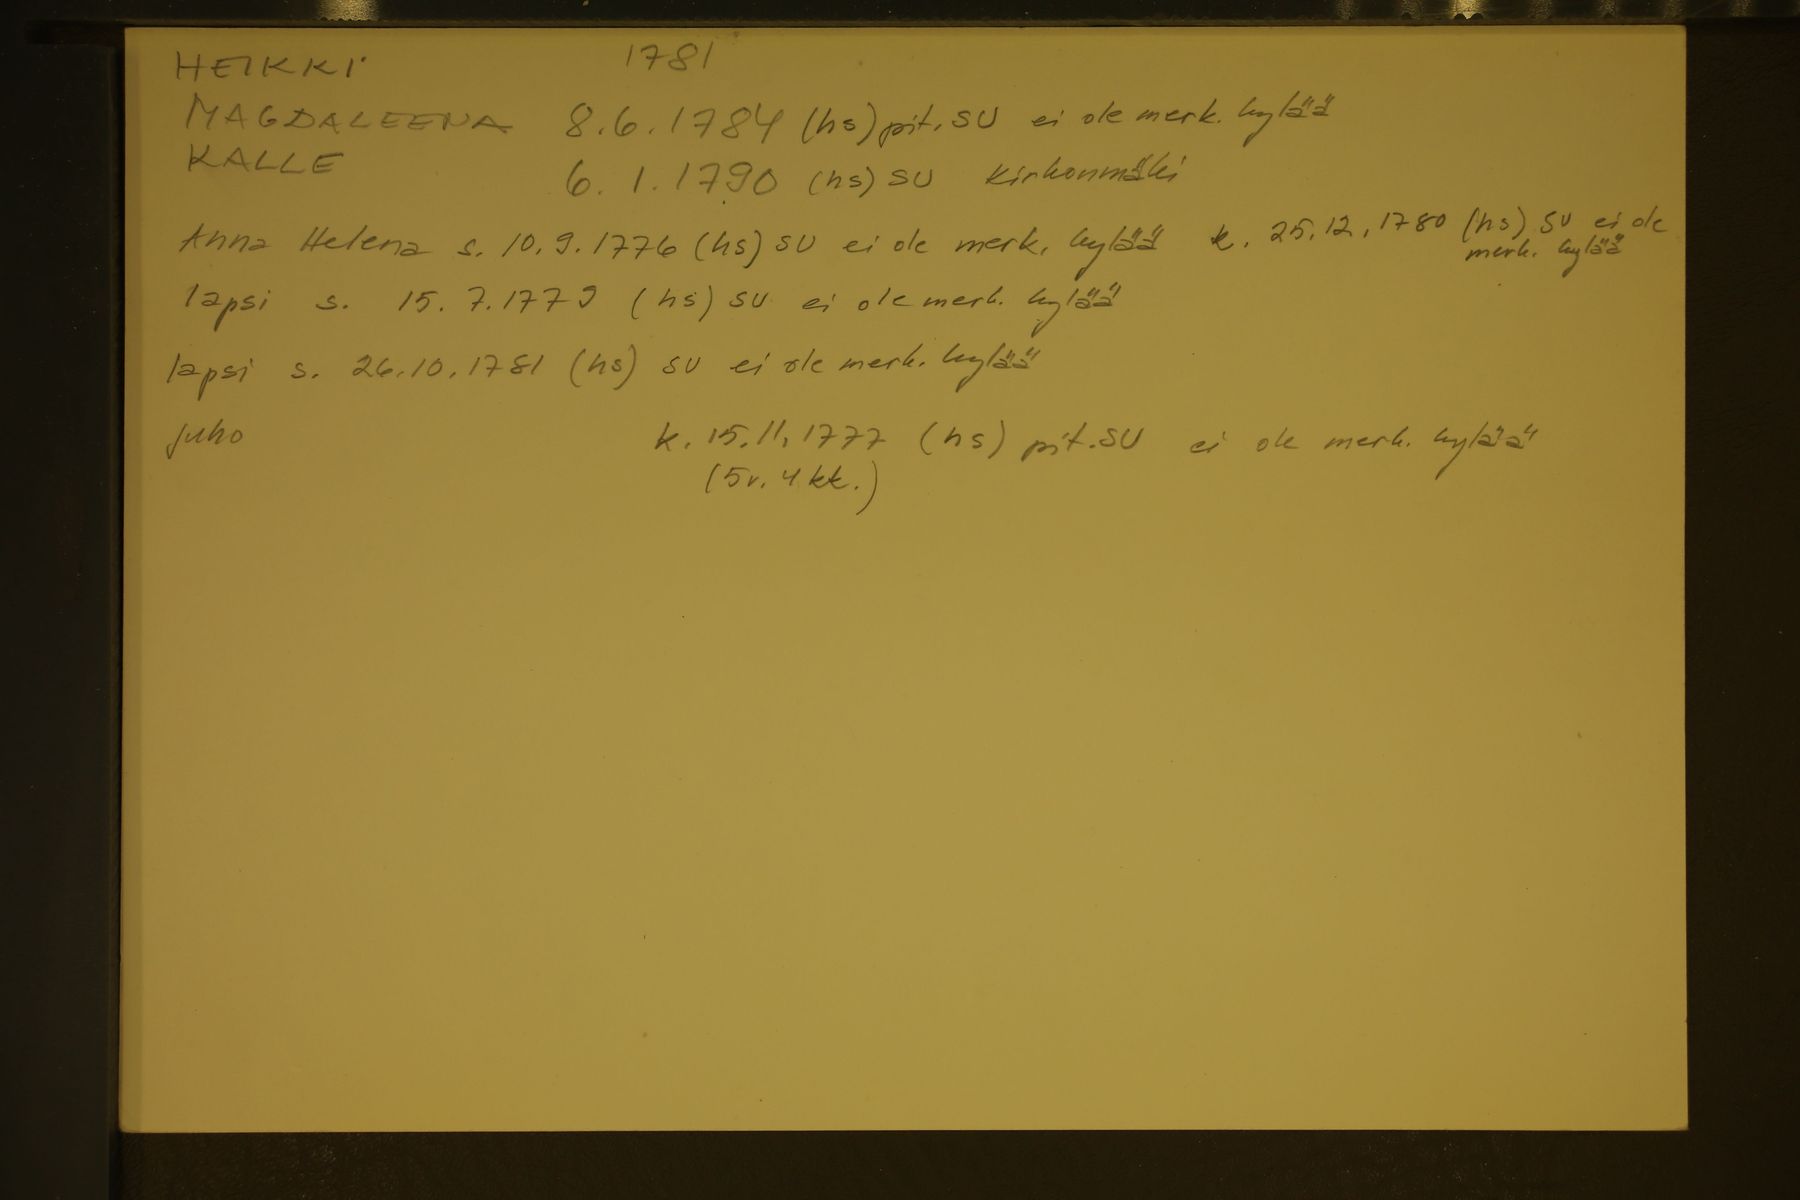 HEIKKI 1781
MAGDALEENA 8.6.1784 (hs) pit. SU ei ole merk. kylää
KALLE 6.1.1790 (hs) SU Kirkonmäki
Anna Helena s. 10.9.1776 (hs) SU ei ole merk. kylää k. 25.12.1780 (hs) SU ei ole
merk. kylää
lapsi s. 15.7.1779 (hs) SU ei ole merk. kylää
lapsi s. 26.10.1781 (hs) SU ei ole merk. kylää
Juho k. 15.11.1777 (hs) pit. SU ei ole merk. kylää
(5v. 4kk.)